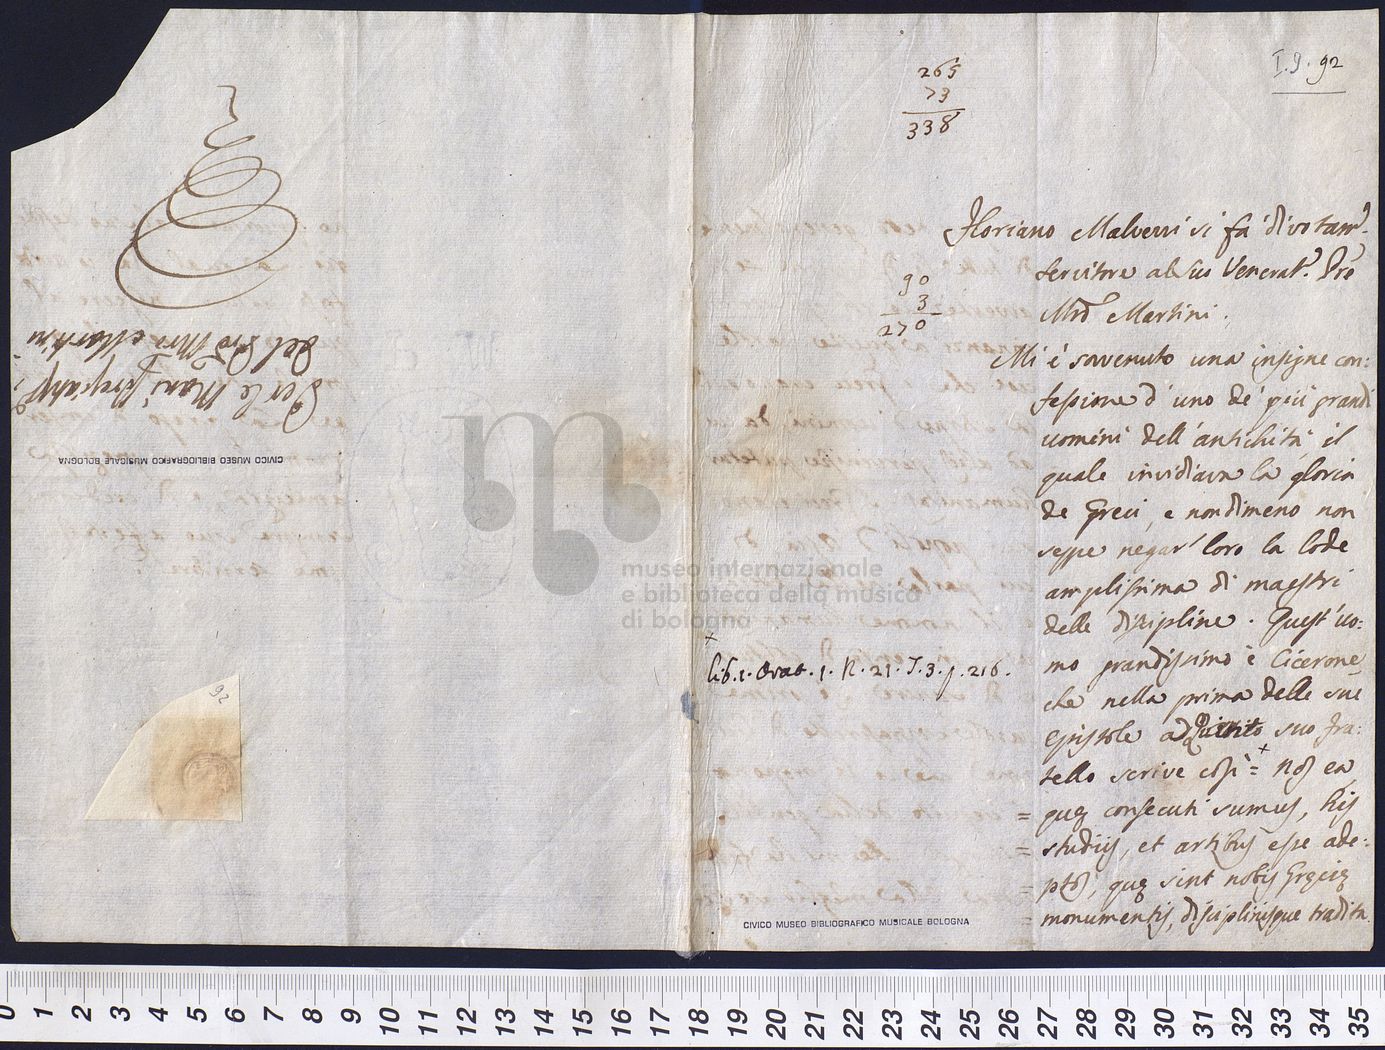 I. 9. 92
265
73
338
Floriano Malvezzi si fà divotam.e
servitore al suo Venerat.o Pre
Mro Martini.
90
3
270
Mi è sovvenuto una insigne con:
fessione d'uno de' più grandi
uomini dell'antichità, il
quale invidiava la gloria
de Greci, e nondimeno non
seppe negar' loro la lode
amplissima di maestri
delle discipline. Quest'uo:
mo grandissimo è Cicerone
che nella prima delle sue
epistole ad Quinto suo fra:
tello scrive così = + Nos ea
= quę consecuti sumus, his
= studiis, et artibus esse ade:
= ptos, quę sint nobis Gręcię
= monumentis, disciplinisque tradita
+
Lib. 1. Orat. 1. N. 21. T. 3. p. 216.
CIVICO MUSEO BIBLIOGRAFICO MUSICALE BOLOGNA
Per le Mani
Del Pre Mro Martini
CIVICO MUSEO BIBLIOGRAFICO MUSICALE BOLOGNA
92
museo internazionale
e biblioteca della musica
di bologna
0 1 2 3 4 5 6 7 8 9 10 11 12 13 14 15 16 17 18 19 20 21 22 23 24 25 26 27 28 29 30 31 32 33 34 35